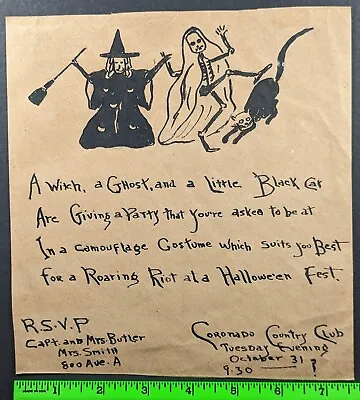 A Witch, a Ghost, and a Little Black Cat
Are Giving a Party that you're asked to be at
In a Camouflage Costume which suits you Best
for a Roaring Riot at a Hallowe'en Fest.
R.S.V.P
Capt. and Mrs. Butler
Mrs. Smith
800 Ave. A
Coronado Country Club
Tuesday Evening
October 31
9.30 — ?
1 2 3 4 5 6 7